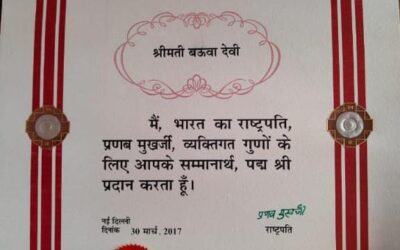 श्रीमती बऊवा देवी
मैं, भारत का राष्ट्रपति,
प्रणब मुखर्जी, व्यक्तिगत गुणों के
लिए आपके सम्मानार्थ, पद्म श्री
प्रदान करता हूँ।
प्रणब मुखर्जी
नई दिल्ली
दिनांक 30 मार्च, 2017 राष्ट्रपति